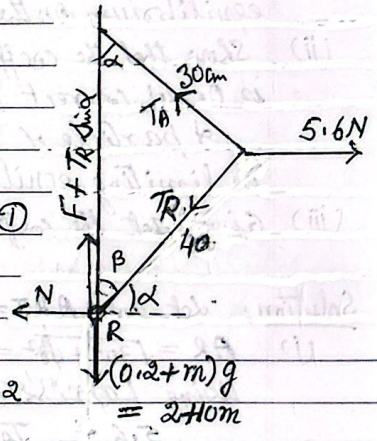 α
30cm
T_A
5.6N
F+ T_R Sinα
①
T_R
40
β
N
α
R
(0.2+m)g
2
= 2+10m